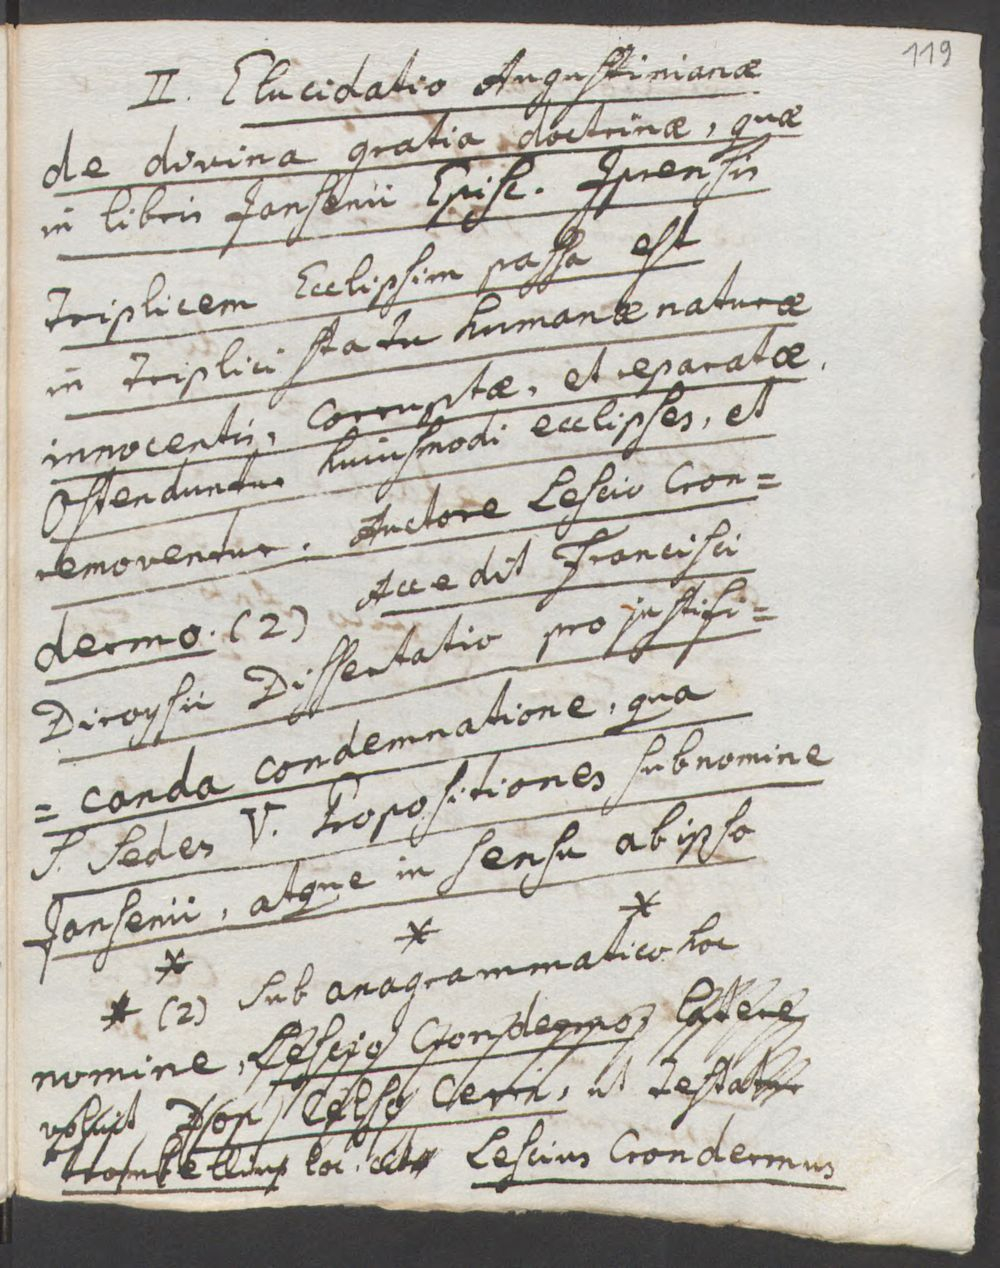 119
II. Elucidatio Augustinianæ
de divina gratia doctrinæ, quæ
in libris Jansenii Episc. Iprensis
triplicem Ecclipsim passa est
in triplici statu humanæ naturæ
innocentis, corruptæ, et reparatæ.
Ostenduntur huiusmodi ecclipses, et
removentur. Auctore Lescio Cron=
dermo. (2) Accedit Francisci
Diroysii Dissertatio pro justifi=
=canda condemnatione, qua
S. Sedes V. Propositiones sub nomine
Jansenii, atque in sensu ab ipso
* * *
* (2) Sub anagrammatico hoc
nomine, Lescio Crondermo, latere
voluit D. Celso Cerri, ut testatur
Trombellius loc. cit. Lescius Crondermus